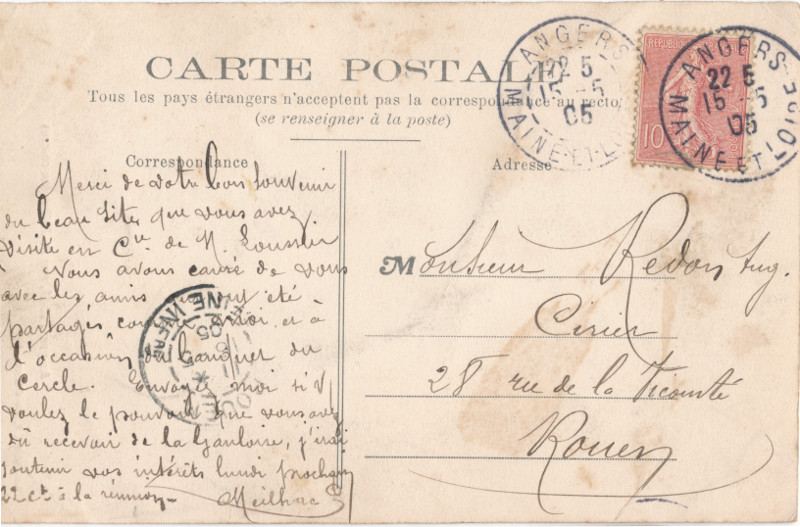 CARTE POSTALE
Tous les pays étrangers n'acceptent pas la correspondance au recto
(se renseigner à la poste)
Correspondance
Adresse
ANGERS
22 5
15 -5
05
MAINE-ET-L
ANGERS
22 5
15 -5
05
MAINE ET LOIRE
10
Merci de votre bon souvenir
du beau site que vous avez
visité en Cie de M.
Nous avons causé de vous
avec les amis qui ont été
partagés comme moi et à
l'occasion du banquet du
cercle. Envoyez moi si v
voulez le pouvoir que vous avez
dû recevoir de la Gauloise, j'irai
soutenir vos intérêts lundi prochain
22 ct à la réunion - Meilhac
Monsieur Redon Aug.
Cirier
28 rue de la Vicomté
Rouen